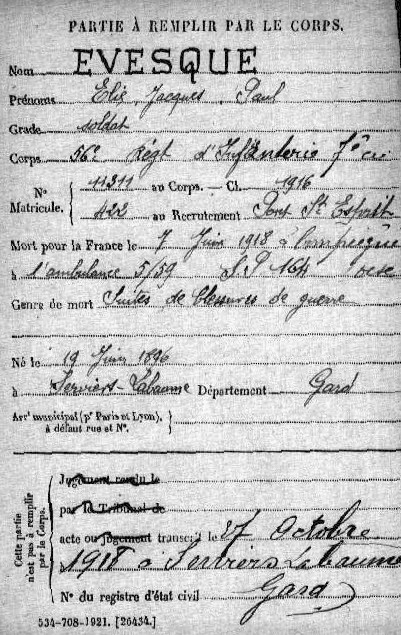 PARTIE À REMPLIR PAR LE CORPS.
Nom EVESQUE
Prénoms Elie, Jacques, Paul
Grade soldat
Corps 56e Régt d'Infanterie 7e Cie
N° Matricule. 11311 au Corps. — Cl. 1916
422 au Recrutement Pont St Esprit
Mort pour la France le 7 Juin 1918 à Compiègne
à l'ambulance 5/59 S.P 164 oise
Genre de mort Suites de blessures de guerre
Né le 19 Juin 1896
à Serviers-Labaume Département Gard
Arrt municipal (pr Paris et Lyon), à défaut rue et N°.
Cette partie n'est pas à remplir par le Corps.
Jugement rendu le
par le Tribunal de
acte ou jugement transcrit le 27 Octobre
1918 à Serviers Labaume
Gard
N° du registre d'état civil
534-708-1921. [26434.]